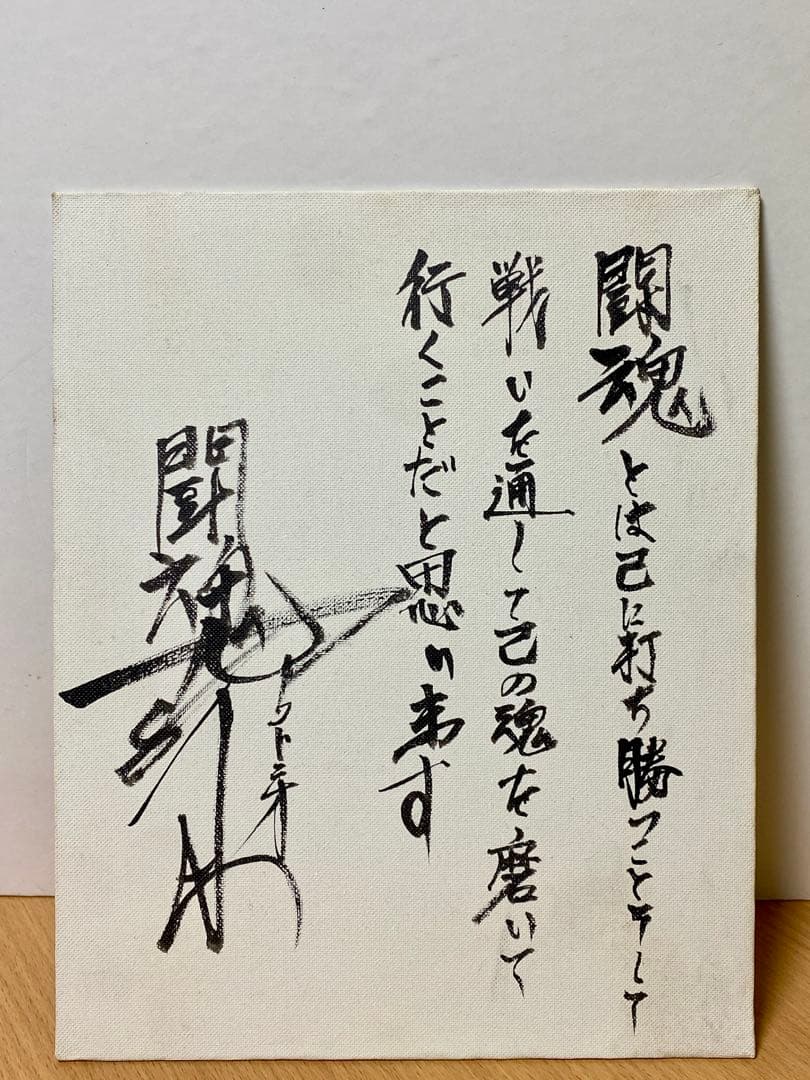 闘魂とは己に打ち勝つことそして
戦いを通して己の魂を磨いて
行くことだと思います
闘魂